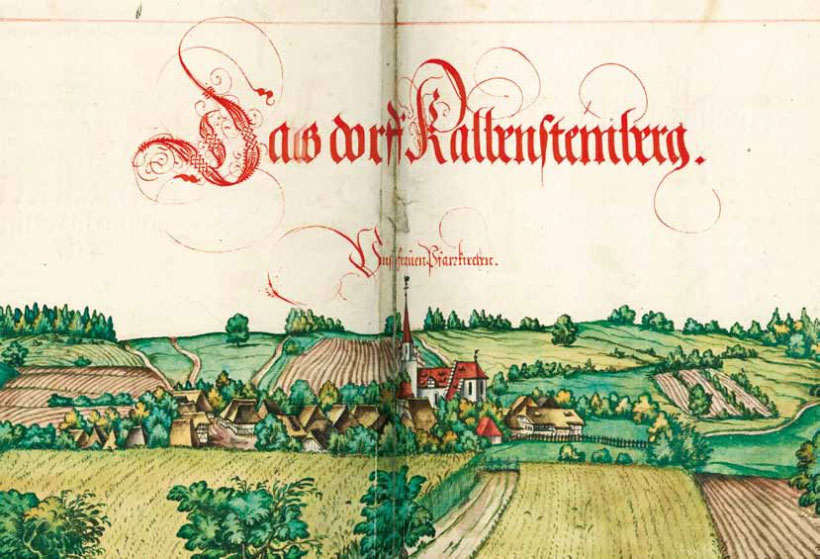 Das dorff Kalbensteinberg.
Vnser frauen Pfarrkirchen.